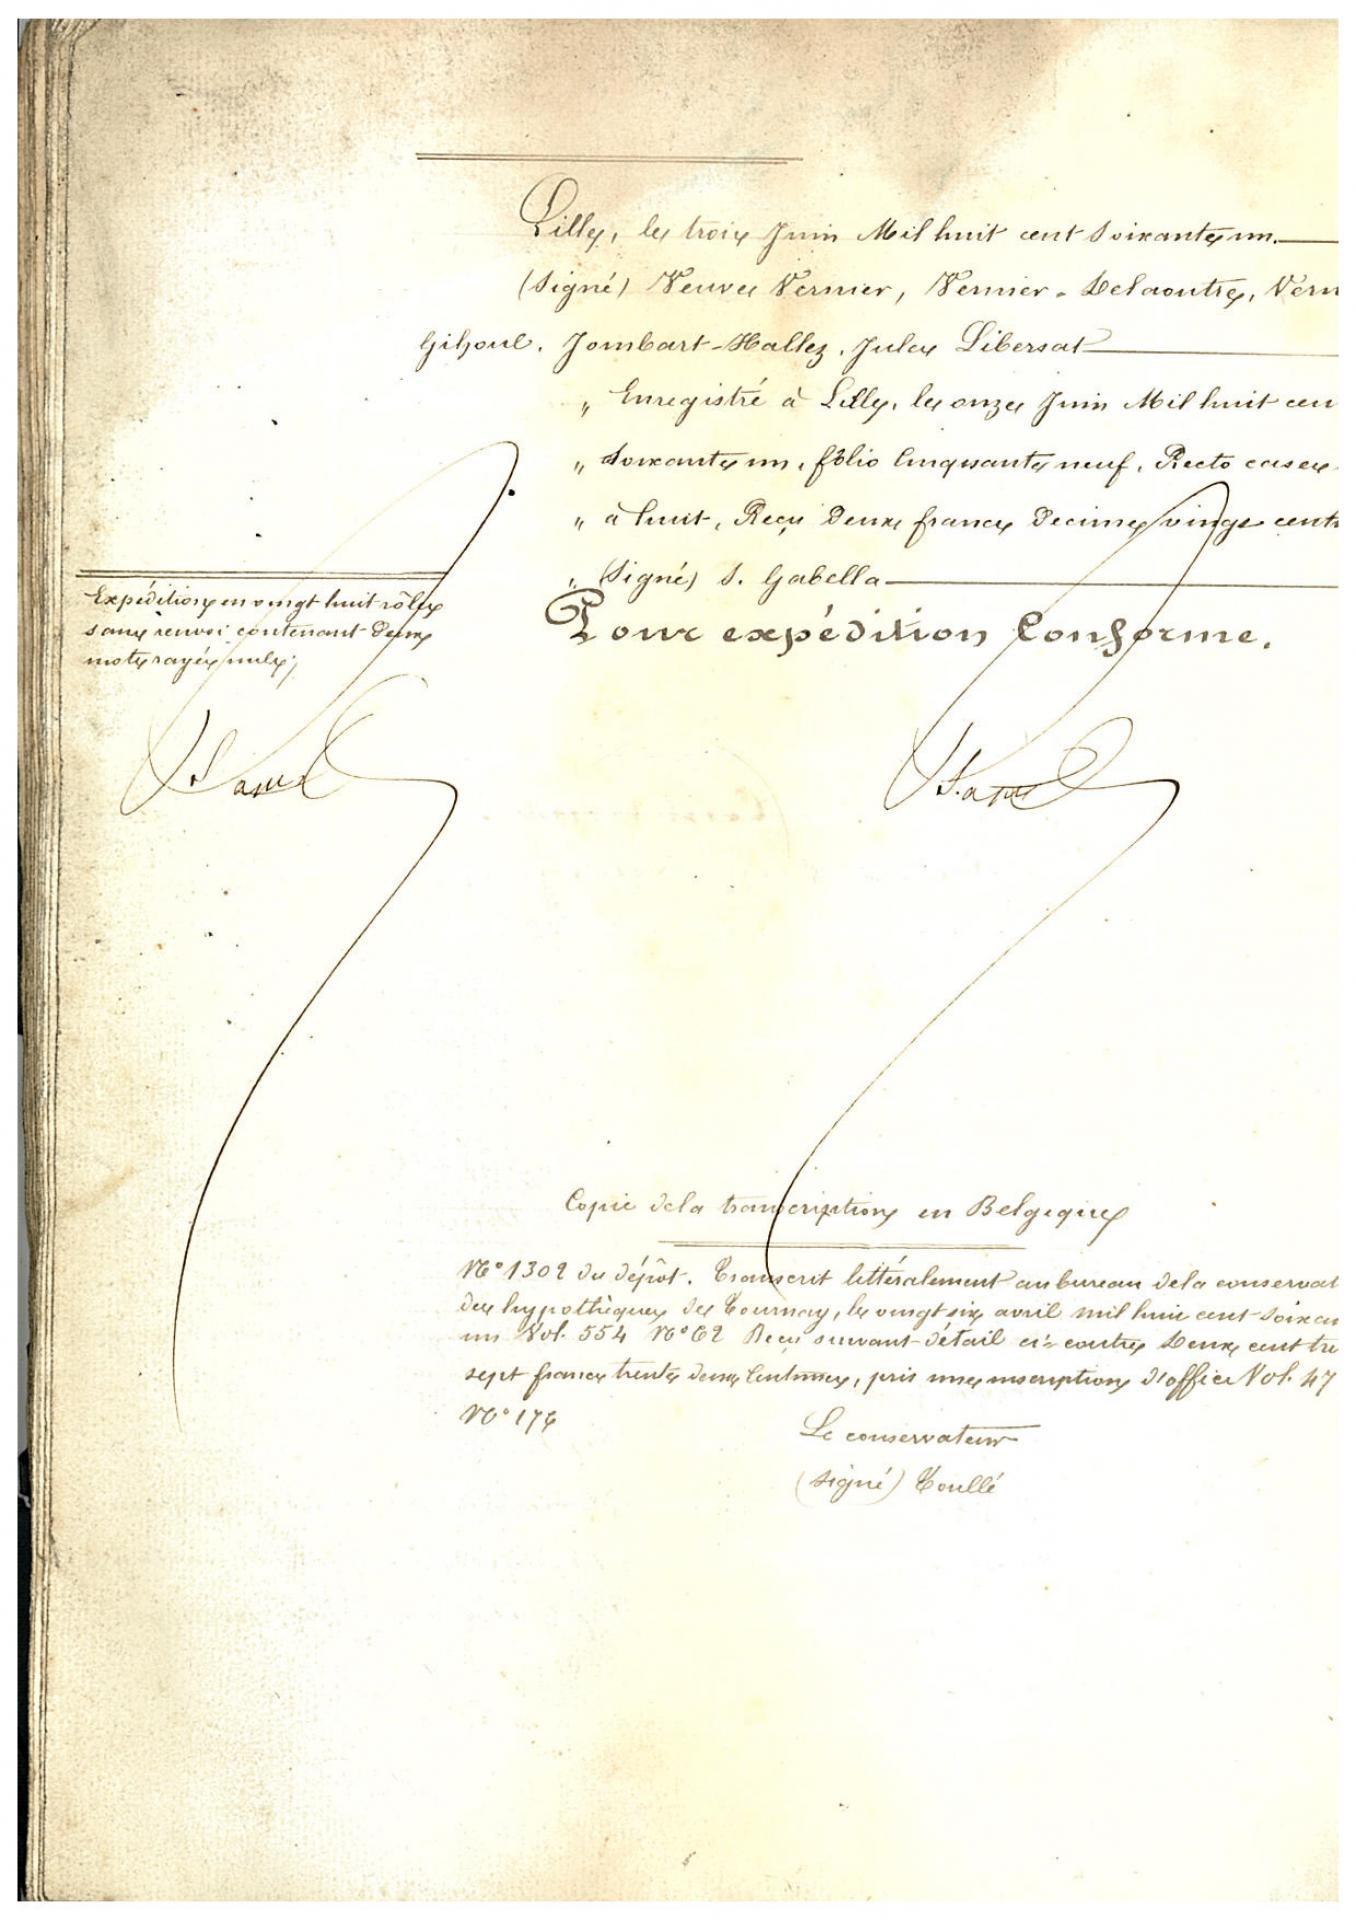 Lille, le trois Juin Mil huit cent soixante un.
(signé) Veuve Vernier, Vernier-Delaoutre, Vern
Gihoul, Jombart-Hallez, Jules Libersat
" Enregistré à Lille, le onze Juin Mil huit cen
" soixante un, folio Cinquante neuf, Recto case
" à huit, Reçu Deux francs Decime vingt cent
" (signé) S. Gabella
Pour expédition Conforme.
Expédition en vingt huit rôles
sans renvoi contenant deux
mots rayés nuls;
Copie de la transcription en Belgique
N° 1302 du dépôt. Transcrit littéralement au bureau de la conservat
des hypothèques de Tournay, le vingt six avril mil huit cent soixan
un Vol. 554 N° 62 Reçu suivant détail ci-contre Deux cent tre
sept francs trente deux Centimes, pris une inscription d'office Vol. 47
N° 176
Le conservateur
(signé) Toullé